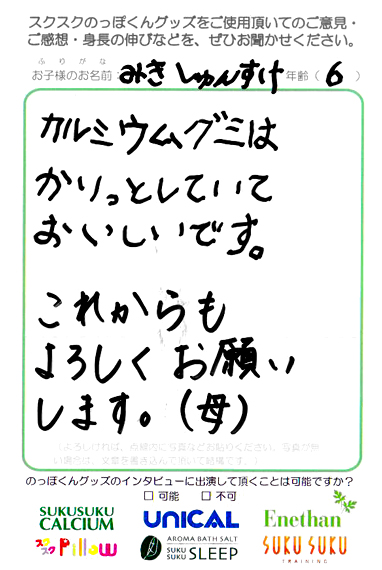 スクスクのっぽくんグッズをご使用頂いてのご意見・
ご感想・身長の伸びなどを、ぜひお聞かせください。
ふりがな
お子様のお名前：みきしゅんすけ 年齢（6）
カルミウムグミは
かりっとしていて
おいしいです。
これからも
よろしくお願い
します。（母）
（よろしければ、点線内に写真などお貼りください。写真が無
い場合は、文章を書き込んで頂いて結構です。）
のっぽくんグッズのインタビューに出演して頂くことは可能ですか？
□ 可能 □ 不可
SUKUSUKU
CALCIUM
UNICAL
Enethan
スクスク Pillow
AROMA BATH SALT
SUKU
SUKU SLEEP
SUKU SUKU
TRAINING